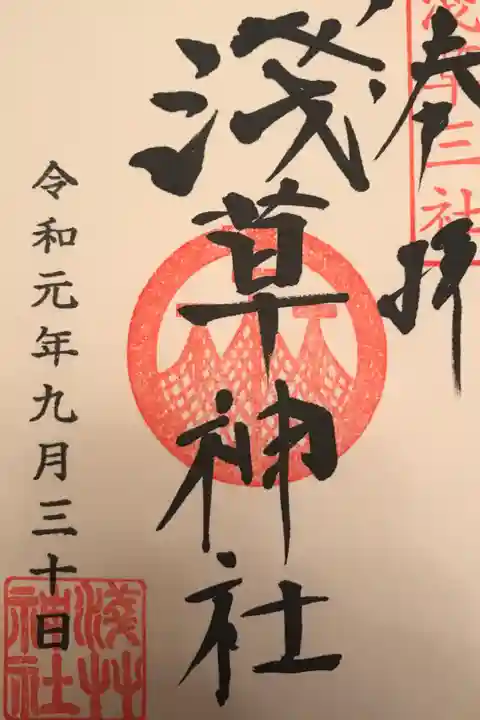 奉拝
浅草三社
淺草神社
令和元年九月三十日
淺草
神社